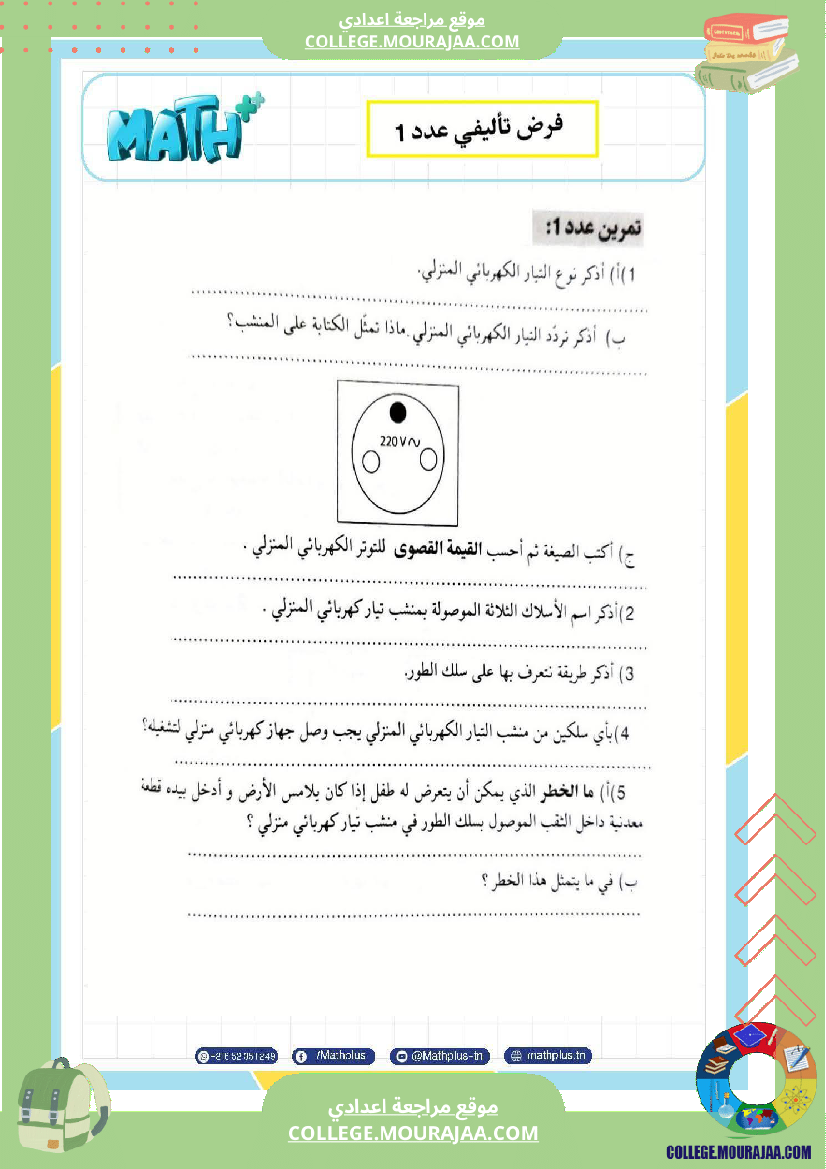 موقع مراجعة اعدادي
COLLEGE.MOURAJAA.COM
MATH++
فرض تأليفي عدد 1
تمرين عدد 1:
1)أ) أذكر نوع التيار الكهربائي المنزلي.
ب) أذكر تردّد التيار الكهربائي المنزلي.ماذا تمثّل الكتابة على المنشب؟
220 V ~
ج) أكتب الصيغة ثم أحسب القيمة القصوى للتوتر الكهربائي المنزلي .
2)أذكر اسم الأسلاك الثلاثة الموصولة بمنشب تيار كهربائي المنزلي .
3) أذكر طريقة نتعرف بها على سلك الطور.
4)بأي سلكين من منشب التيار الكهربائي المنزلي يجب وصل جهاز كهربائي منزلي لتشغيله؟
5)أ) ما الخطر الذي يمكن أن يتعرض له طفل إذا كان يلامس الأرض و أدخل بيده قطعة
معدنية داخل الثقب الموصول بسلك الطور في منشب تيار كهربائي منزلي ؟
ب) في ما يتمثل هذا الخطر ؟
/Mathplus
@Mathplus-tn
mathplus.tn
موقع مراجعة اعدادي
COLLEGE.MOURAJAA.COM
COLLEGE.MOURAJAA.COM